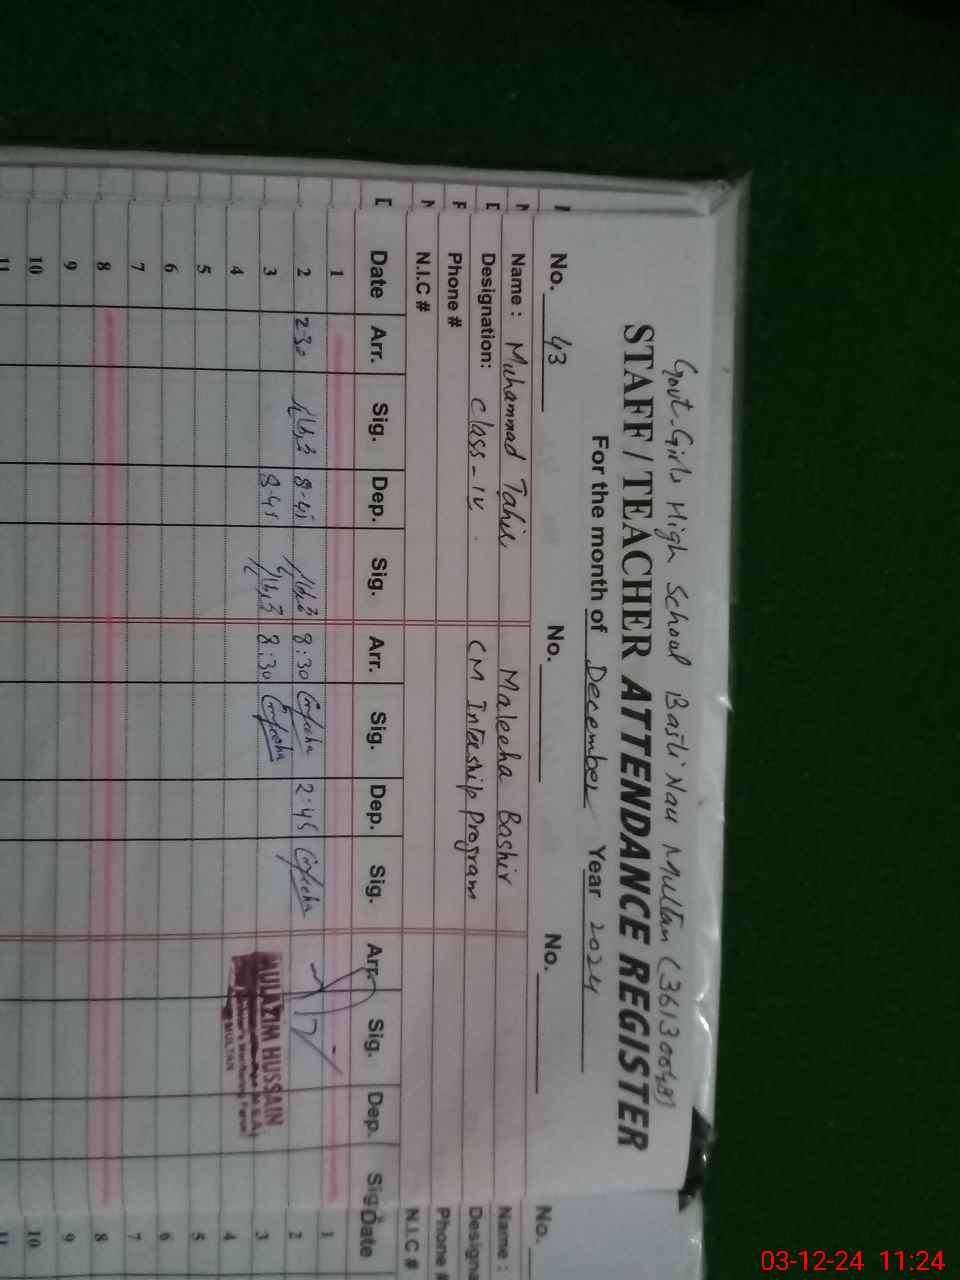 Govt. Girls High School Basti Nau Multan (36130048)
STAFF / TEACHER ATTENDANCE REGISTER
For the month of December Year 2024
No. 43 No. No. No.
Name : Muhammad Tahir Maleeha Bashir Name :
Designation: Class-IV CM Internship Program Designa
Phone # Phone #
N.I.C # N.I.C #
Date Arr. Sig. Dep. Sig. Arr. Sig. Dep. Sig. Arr. Sig. Dep. Sig. Date
1 1
2 2-30 8-45 8:30 2:45 2
3 8-45 8:30 MULAZIM HUSSAIN 3
4 MULTAN 4
5 5
6 6
7 7
8 8
9 9
10 10
11 11
03-12-24 11:24